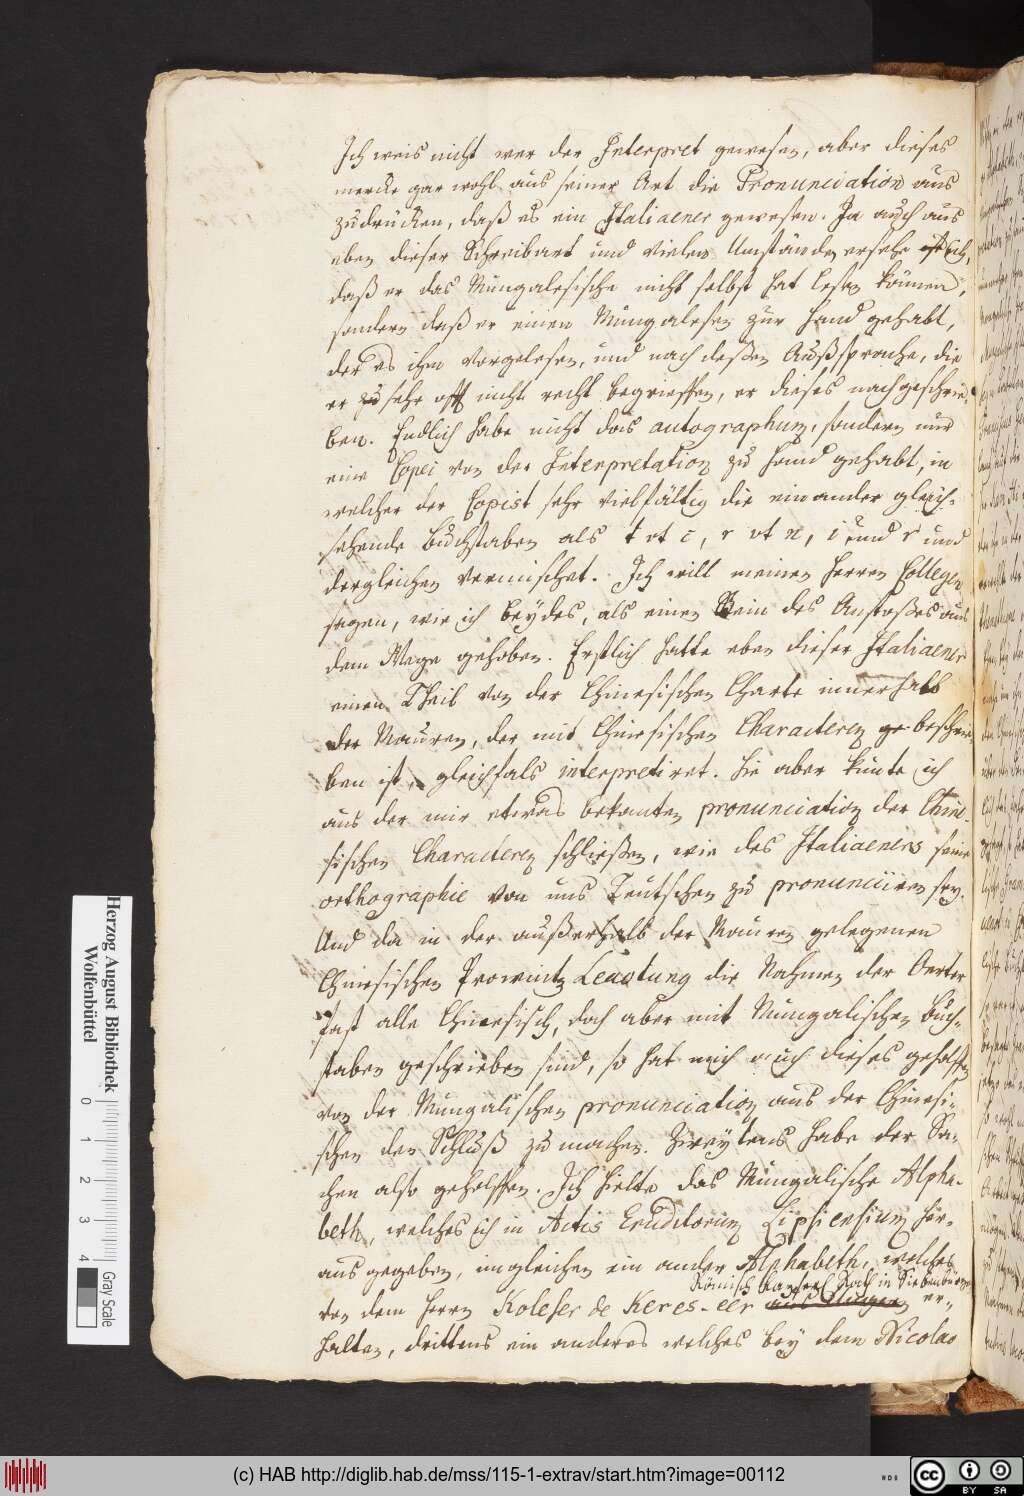 Ich weis nicht wer der Interpret gewesen, aber dieses
mercke gar wohl aus seiner Art die Pronunciation aus
zudrücken, daß es ein Italiaener gewesen. Ja auch aus
eben dieser Schreibart und vielen Umständen ersehe ich,
daß er das Mungalesische nicht selbst hat lesen können,
sondern daß er einen Mungalesen zur Hand gehabt,
der es ihm vorgelesen, und nach deßen Außsprache, die
er zu sehr offt nicht recht begrieffen, er dieses nachgeschrie-
ben. Endlich habe nicht das autographum, sondern nur
eine Copei von der Interpretation zu Hand gehabt, in
welcher der Copist sehr vielfältig die einander gleich-
sehende Buchstaben als t et c, r et n, i und s und
dergleichen vermischet. Ich will meinen Herren Collegen
sagen, wie ich beydes, als einen Stein des Anstoßes aus
dem Wege gehoben. Erstlich hatte eben dieser Italiaener
einen Theil von der Chinesischen Charte innerhalb
der Mauren, der mit Chinesischen Characteren ge beschrie-
ben ist, gleichfals interpretiret. Hie aber kunte ich
aus der mir etwas bekanten pronunciation der Chine-
sischen Characteren schließen, wie des Italiaeners seine
orthographie von uns Teutschen zu pronunciiren sey.
Und da in der außerhalb der Mauren gelegenen
Chinesischen Provintz Leaotung die Nahmen der Oerter
fast alle Chinesisch, doch aber mit Mungalischen Buch-
staben geschrieben sind, so hat mich auch dieses geholffen
von der Mungalischen pronunciation aus der Chinesi-
schen den Schluß zu machen. Zweytens habe der Sa-
chen also geholffen. Ich hielte das Mungalische Alpha-
beth, welches ich in Actis Eruditorum Lipsiensium her-
aus gegeben, imgleichen ein ander Alphabeth, welches
Römisch Kayserl. Rath in Siebenbürgen
von dem Herrn Koleser de Keres-eer aus Ungern er-
halten, drittens ein anderes welches bey dem Nicolao
Herzog August Bibliothek
Wolfenbüttel
0 1 2 3 4
Gray Scale
(c) HAB http://diglib.hab.de/mss/115-1-extrav/start.htm?image=00112
HAB
cc
BY SA